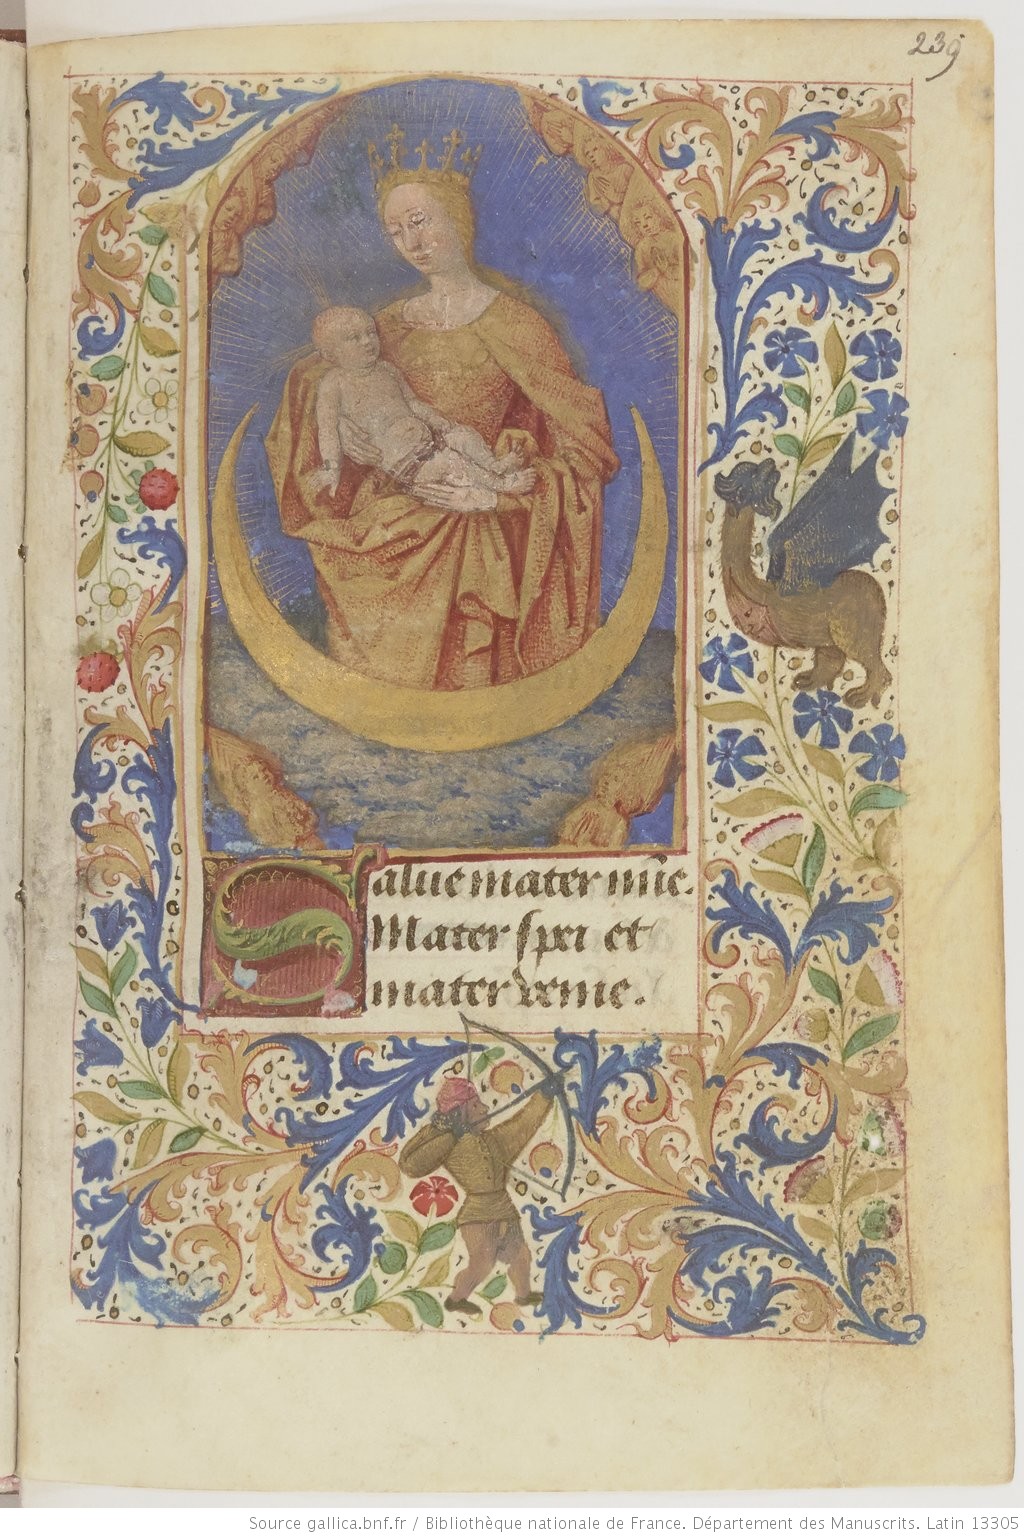 239
Salue mater mīe.
Mater spei et
mater venie.
Source gallica.bnf.fr / Bibliothèque nationale de France. Département des Manuscrits. Latin 13305